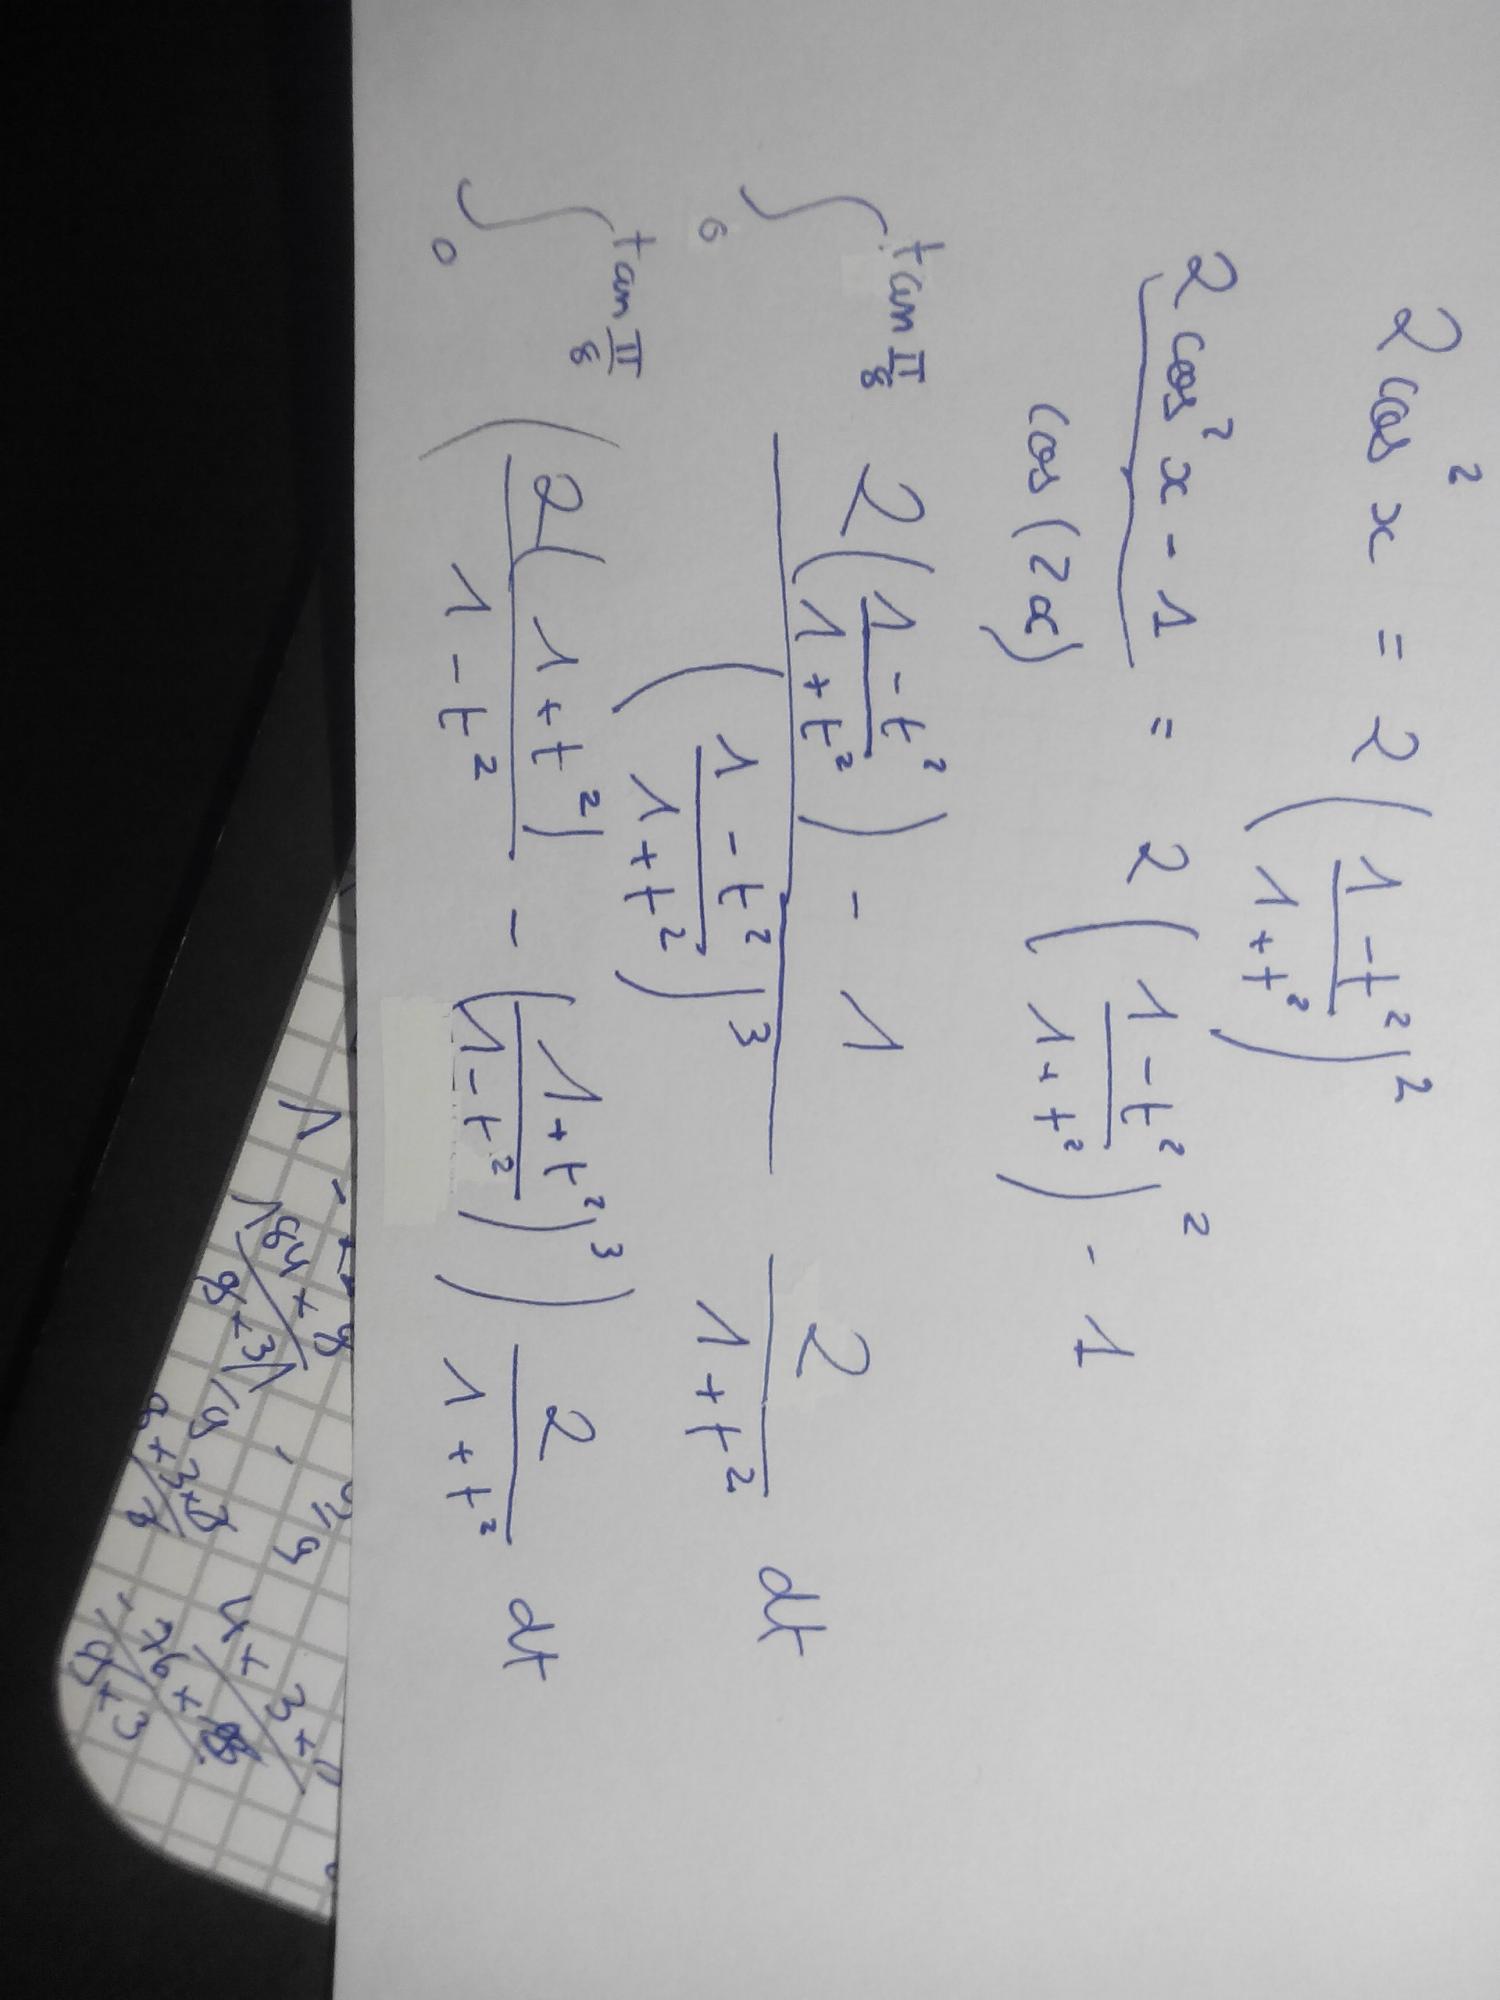 2 cos² x = 2 ( (1 - t²)/(1 + t²) )²
2 cos² x - 1 = 2 ( (1 - t²)/(1 + t²) )² - 1
cos (2x)
∫₀^(tan π/8) (2 ( (1 - t²)/(1 + t²) ) - 1)/( (1 - t²)/(1 + t²) )³ 2/(1 + t²) dt
∫₀^(tan π/8) ( 2(1 + t²)/(1 - t²) - ( (1 + t²)/(1 - t²) )³ ) 2/(1 + t²) dt